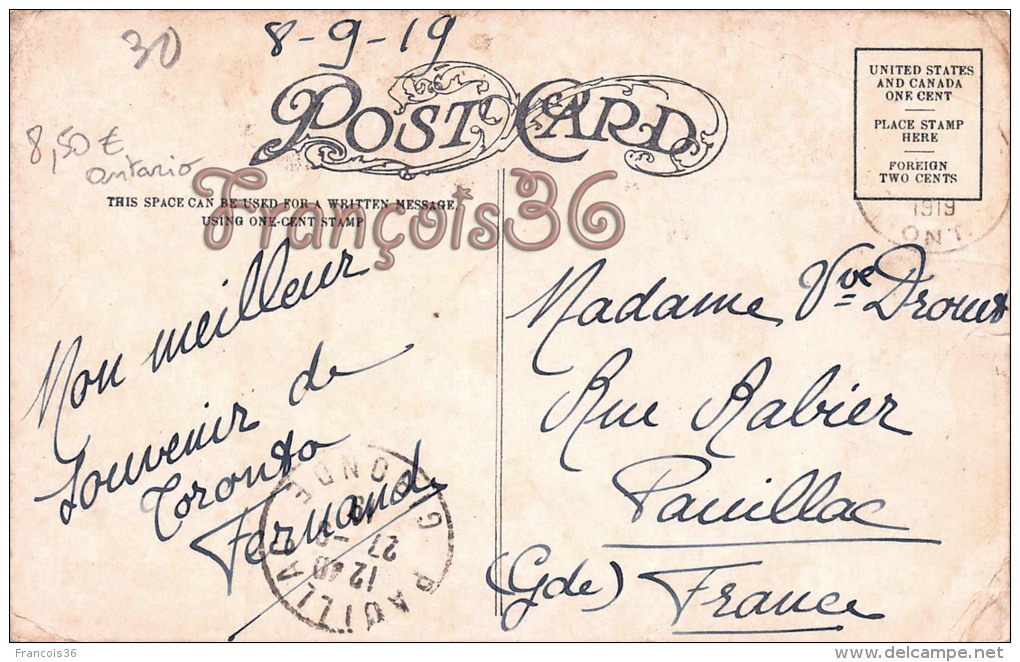 30
8-9-19
POST CARD
UNITED STATES
AND CANADA
ONE CENT
PLACE STAMP
HERE
FOREIGN
TWO CENTS
1919
ONT.
8,50 €
Ontario
François36
THIS SPACE CAN BE USED FOR A WRITTEN MESSAGE
USING ONE-CENT STAMP
Mon meilleur
souvenir de
Toronto
Fernand
Madame Vve Drouet
Rue Rabier
Pauillac
(Gde) France
PAUILLAC GIRONDE
12 40
27 -9
19
Francois36
delcampe.net